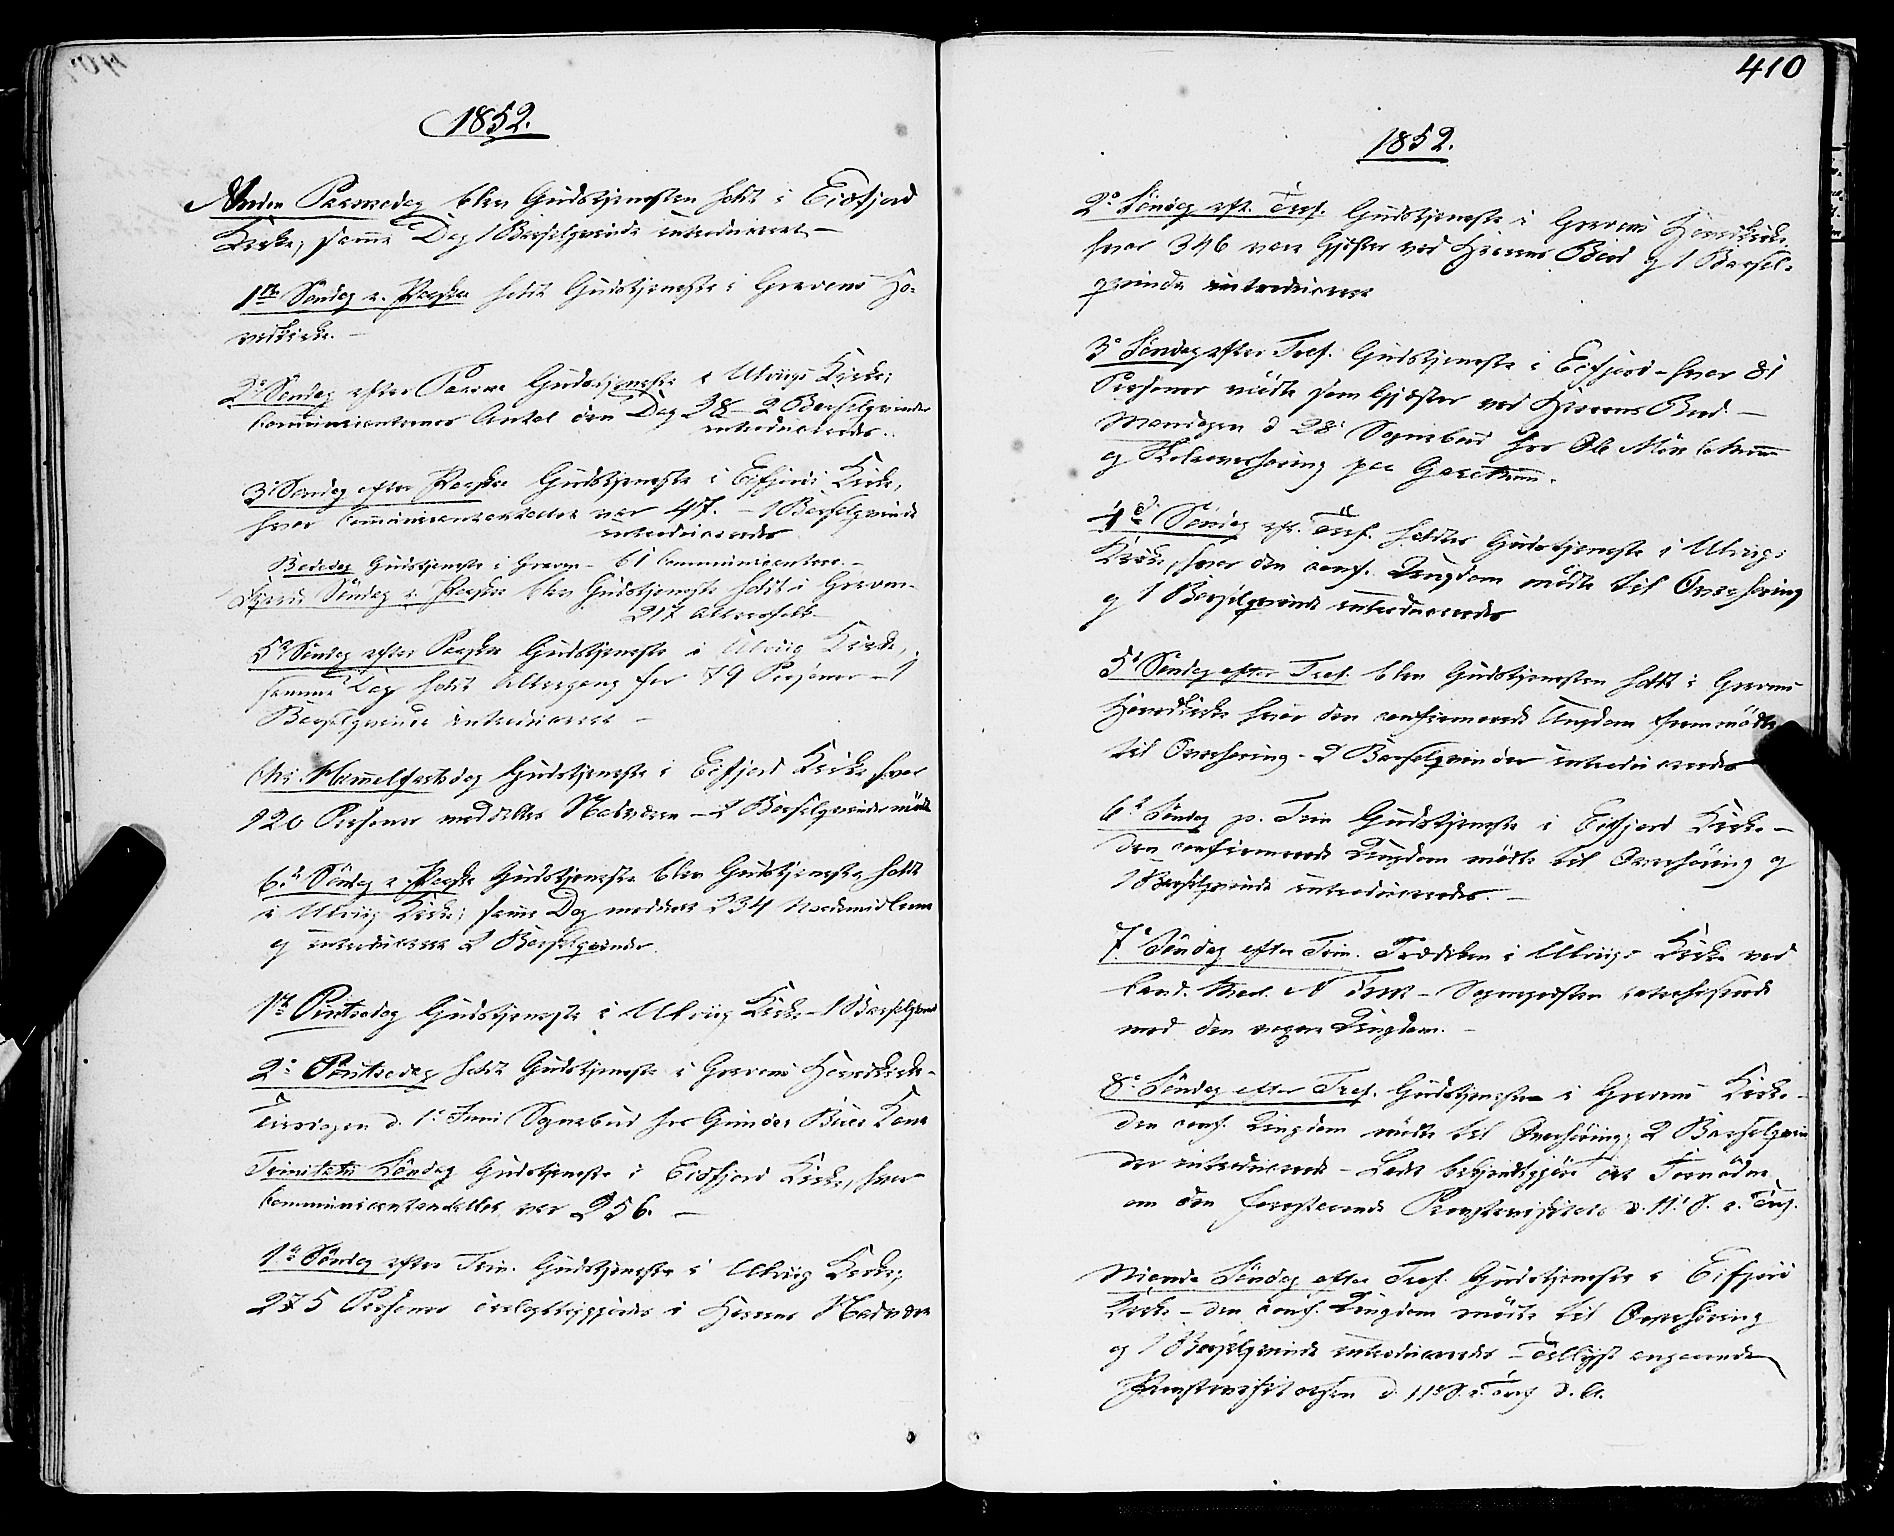 1852.
Anden Paaskedag blev Gudstjenesten holdt i Eidfjord
Kirke, samme Dag 1 Barselqvinde introduceret –
1ste Søndag e. Paaske holdt Gudstjeneste i Gravens Ho-
vedkirke. –
2den Søndag efter Paaske Gudstjeneste i Ulviigs Kirke;
Communicanternes Antal den Dag 28 – 2 Barselqvinder
introduceredes.
3die Søndag efter Paaske Gudstjeneste i Eifjords Kirke,
hvor Communicantantallet var 47. – 1 Barselqvinde
introduceredes
Bededag Gudstjeneste i Graven – 61 Communicantere. –
Fjerde Søndag e. Paaske blev Gudstjeneste holdt i Graven –
217 Altersfolk –
5te Søndag efter Paaske Gudstjeneste i Ulviig Kirke,
samme Dag holdt Altergang for 79 Personer – 1
Barselqvinde introduceret –
Chr. Himmelfartsdag Gudstjeneste i Eifjord Kirke hvor
120 Personer meddeltes Nadveren – 1 Barselqvinde mødte
6te Søndag e. Paaske Gudstjeneste blev Gudstjeneste holdt
i Ulviig Kirke; samme Dag 234
og introduceret 2 Barselqvinder.
1ste Pintsedag Gudstjeneste i Ulviig Kirke – 1 Barselqvinde
2den Pintsedag holdt Gudstjeneste i Gravens Hovedkirke –
Tirsdagen d. 1ste Juni Sognebud hos Kone
Trinitatis Søndag Gudstjeneste i Eidfjord Kirke, hvor
Communicantantallet var 256. –
1ste Søndag efter Trin. Gudstjeneste i Ulviig Kirke;
275 Personer i Herrens Nadvere
410
1852.
2den Søndag eft. Tref. Gudstjeneste i Gravens Hovedkirke,
hvor 346 vare Gjester ved Herrens Bord og 1 Barsel-
qvinde introduceret
3die Søndag efter Tref. Gudstjeneste i Eifjord – hvor 81
Personer mødte som Gjester ved Herrens Bord –
Mandagen d 28de Sognebud hos Ole
og paa
4de Søndag eft. Tref. holdtes Gudstjeneste i Ulviigs
Kirke, hvor den conf. Ungdom mødte til Overhøring
og 1 Barselqvinde introduceredes
5te Søndag efter Tref. blev Gudstjenesten holdt i Gravens
Hovedkirke hvor den confirmerede Ungdom fremmødte
til Overhøring – 2 Barselqvinder introduceredes
6te Søndag p. Trin Gudstjeneste i Eifjord Kirke –
den confirmerede Ungdom mødte til Overhøring og
1 Barselqvinde introduceredes. –
7de Søndag efter Trin. Prædiken i Ulviigs Kirke ved
Cand. theol. N – Sognepresten catechiserede
med den Ungdom. –
8de Søndag efter Tref. Gudstjeneste i Gravens Kirke –
den conf. Ungdom mødte til Overhøring; 2 Barselqvin
der introducerede – Lodt bekjendtgjøre det Fornødne
om den forestaaende Provstevisitats d. 11te S. e. Tref.
Niende Søndag efter Tref. Gudstjeneste i Eifjord
Kirke – den conf. Ungdom mødte til Overhøring
og 1 Barselqvinde introduceredes – Tillyst angaaende
Provstevisitatsen d. 11te S. e. Tref d. A.